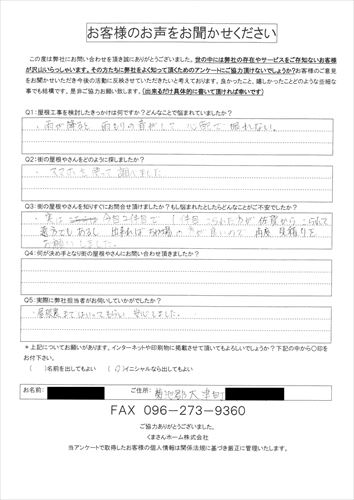 お客様のお声をお聞かせください
この度は弊社にお問い合わせを頂き誠にありがとうございました。世の中には弊社の存在やサービスをご存知ないお客様
が沢山いらっしゃいます。その方たちに弊社をよく知って頂くためのアンケートにご協力頂けないでしょうか?お客様のご意見
をお聞かせいただき今後の活動に反映させていただきたいと考えております。良かったこと、嬉しかったことどのような些細な
事でも結構です。是非ご協力お願い致します。(出来るだけ具体的に書いて頂ければ幸いです)
Q1:屋根工事を検討したきっかけは何ですか?どんなことで悩まれていましたか?
・雨が降ると 雨もりの音がして 心配で 眠れない。
Q2:街の屋根やさんをどのように探しましたか?
・スマホを使って 探しました
Q3:街の屋根やさんを知りすぐにお問合せ頂けましたか?もし悩まれたとしたらどんなことがご不安でしたか?
・実は 今回2件目で 1件目こられた方が 佐賀から こられて
遠方でしあるし 出来れば の方が良いので 再度 見積りを
お願いしました。
Q4:何が決め手となり街の屋根やさんにお問い合わせ頂きましたか?
Q5:実際に弊社担当者がお伺いしていかがでしたか?
・屋根裏まではいってもらい 安心しました。
*上記についてお願いがあります。インターネットや印刷物に掲載させて頂いてもよろしいでしょうか?下記の中から〇印を
お付下さい。
( )名前を出してもよい (〇)イニシャルなら出してもよい
お名前: ご住所: 菊池郡大津町
FAX 096-273-9360
ご協力ありがとうございました。
くまさんホーム株式会社
当アンケートで取得したお客様の個人情報は関係法規に基づき厳正に管理いたします。